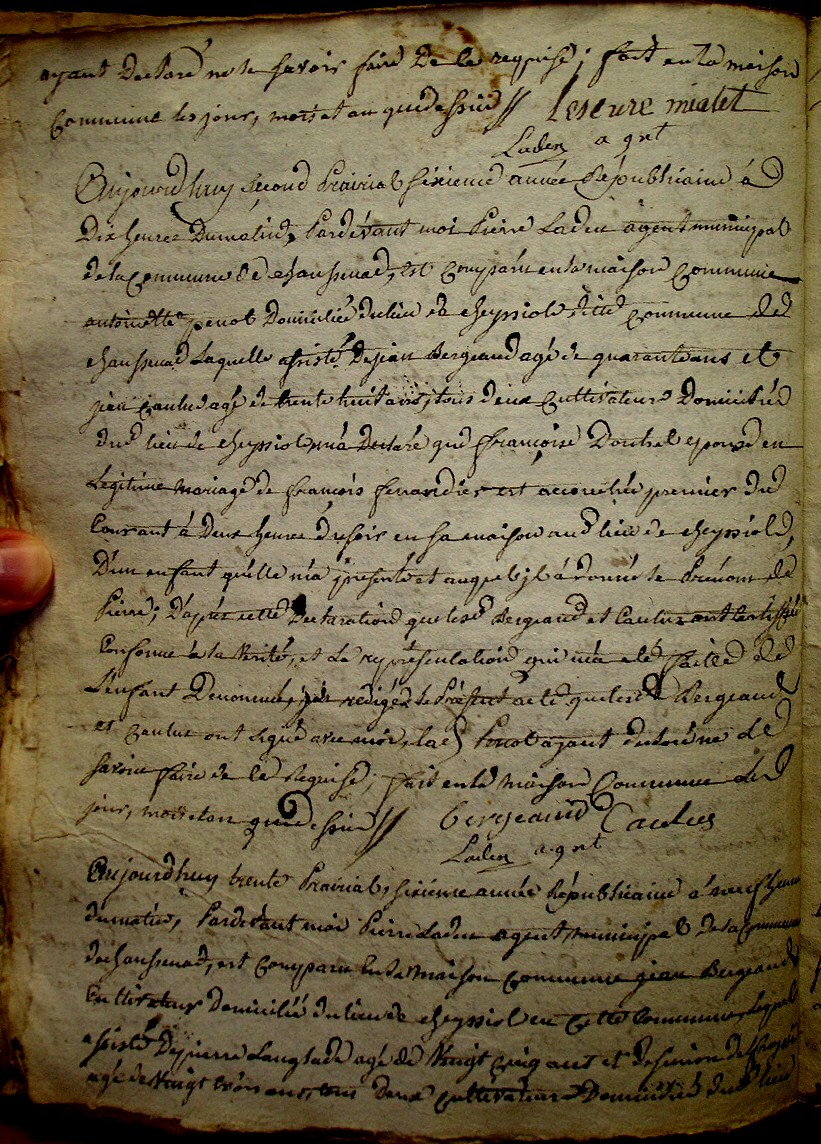 ayant Declaré ne le savoir faire De le requise; fait en la maison
Commune les jour, mois et an que dessus // Leseure mialet
Laden agnt
Aujourdhuy second Prairial sixieme année Républicaine à
Dix heures Dumatin, Pardevant moi Pierre Laden agent municipal
de la Commune de chaussenad, est Comparu en la maison Commune
antoinette penot Domiciliée du lieu de cheyssiol dite Commune de
chaussenad Laquelle assisté De jean Bergeaud agé de quarante ans et
jean Caulus agé de trente huit ans, tous deux Cultivateurs Domiciliés
dud lieu de cheyssiol, m'a Declaré que françoise Douhel epouse en
Legitime mariage de françois ferrandier est accouchée premier du
Courant à Deux heures du soir en sa maison aud lieu de cheyssiol,
D'un enfant qu'elle m'a presenté et auquel il à donné le Prénom de
Pierre; D'après cette Declaration que lesd Bergeaud et Caulus ont certiffié
Conforme à la Verité, et La representation qui m'a eté faite de
L'enfant Denommé, j'ai redigé le Présent acte que lesd Bergeaud
et Caulus ont signé avec moi, lad Penot ayant declaré ne Le
savoir faire de le Requise; fait en la Maison Commune Les
jour, mois et an que dessus // bergeaud Caulus
Laden agnt
Aujourdhuy trente Prairial, sixieme année Républicaine à neuf heures
dumatin, Pardevant moi Pierre Laden agent, municipal de la Commune
de chaussenad, est Comparu En la Maison Commune jean Bergeaud
Cultivateur Domicilié du lieu de cheyssiol en Cette Commune, Lequel
assisté De pierre Langlade agé de Vingt Cinq ans et de simon
agé de Vingt trois ans, tous Deux Cultivateurs Domiciliés dud lieu